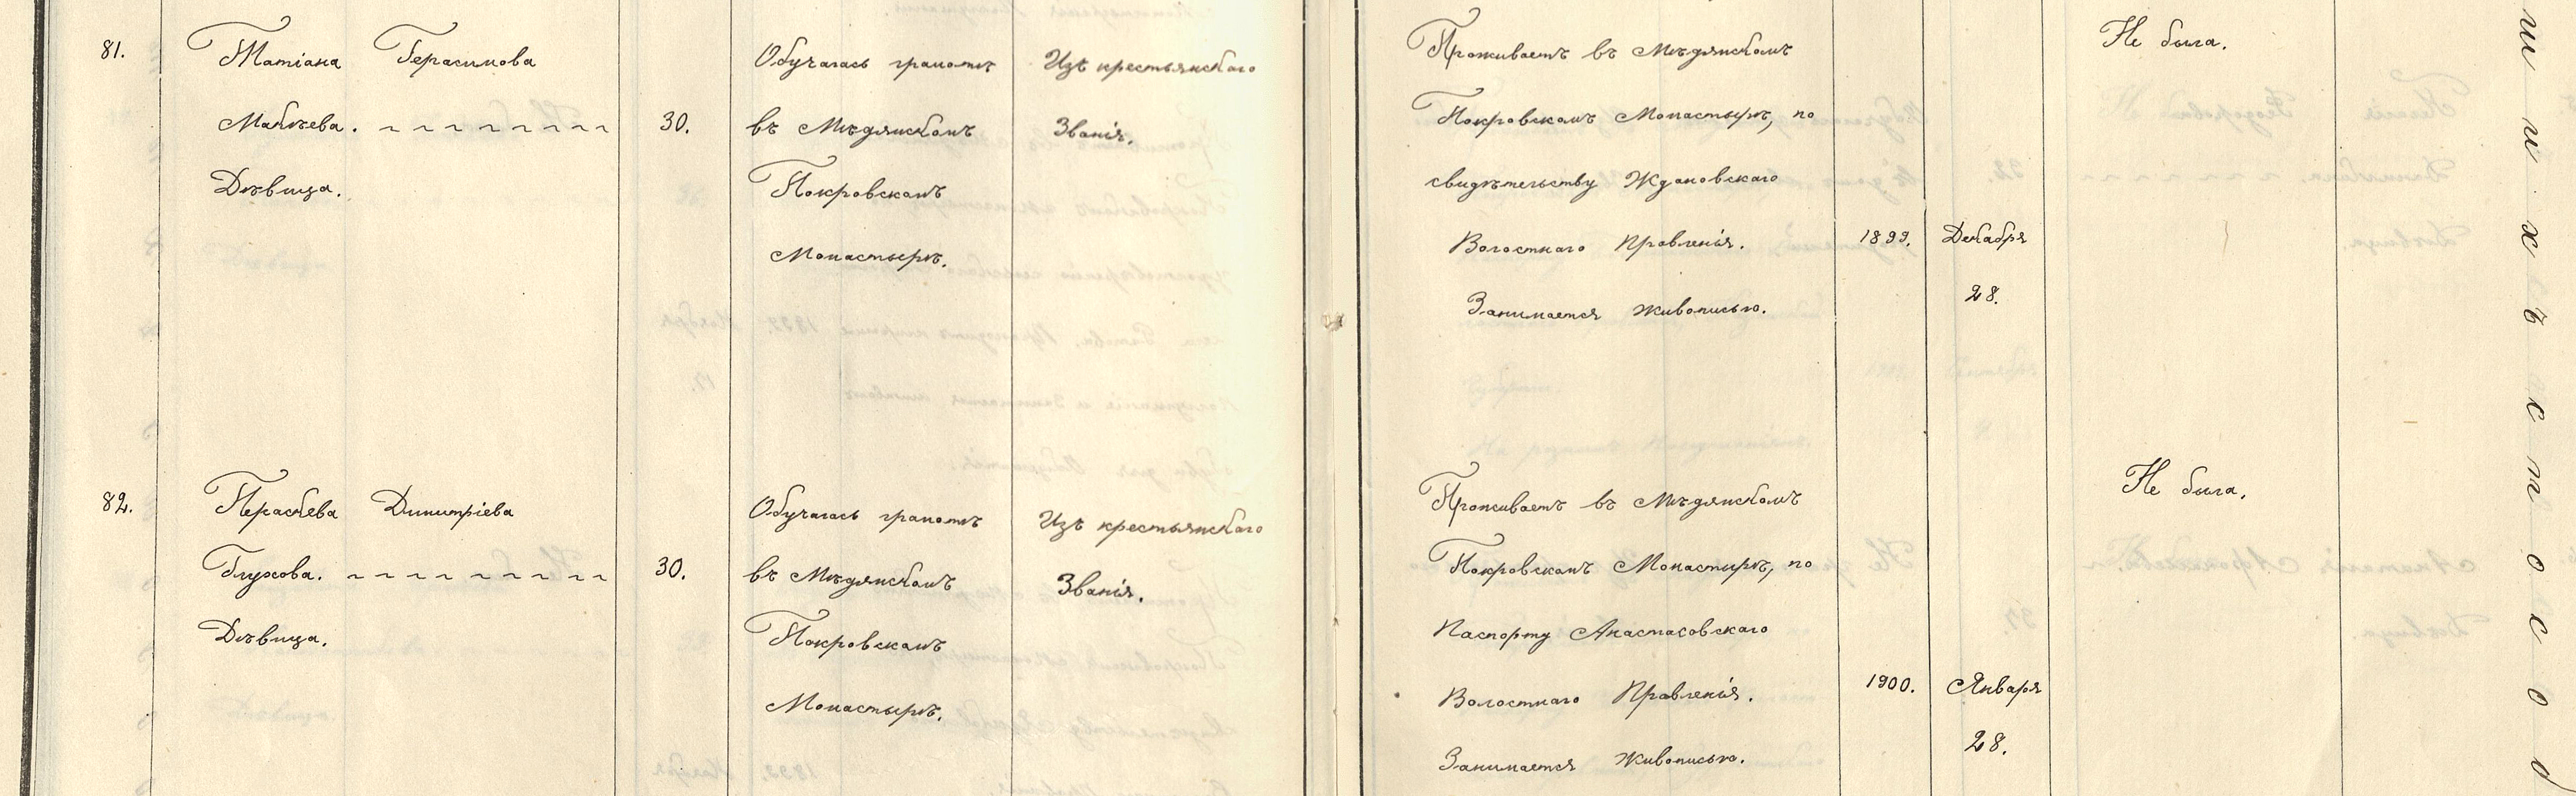 81. Татіана Герасимова
Макѣева.
Дѣвица.
30.
Обучалась грамотѣ
въ Мѣдянскомъ
Покровскомъ
Монастырѣ.
Изъ крестьянскаго
Званія.
Проживаетъ въ Мѣдянскомъ
Покровскомъ Монастырѣ, по
свидѣтельству Ждановскаго
Волостнаго Правленія.
Занимается живописью.
1899.
Декабря
28.
Не была.
82. Параскева Димитріева
Глухова.
Дѣвица.
30.
Обучалась грамотѣ
въ Мѣдянскомъ
Покровскомъ
Монастырѣ.
Изъ крестьянскаго
Званія.
Проживаетъ въ Мѣдянскомъ
Покровскомъ Монастырѣ, по
Паспорту Анастасовскаго
Волостнаго Правленія.
Занимается живописью.
1900.
Января
28.
Не была.